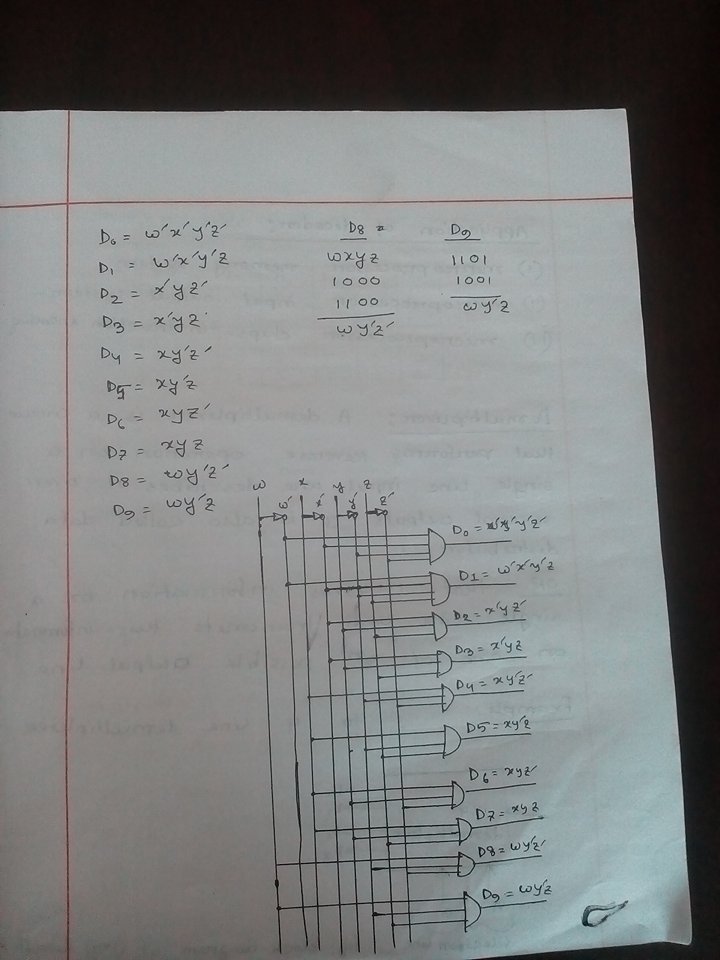 D₀ = w'x'y'z'
D₁ = w'x'y'z
D₂ = x'yz'
D₃ = x'yz
D₄ = xy'z'
D₅ = xy'z
D₆ = xyz'
D₇ = xyz
D8 = wy'z'
D₉ = wy'z
D8 =
wxyz
1000
1100
wy'z'
D₉
1101
1001
wy'z
w w' x x' y y' z z'
D₀ = w'x'y'z'
D1 = w'x'y'z
D₂ = x'yz'
D₃ = x'yz
D₄ = xy'z'
D5 = xy'z
D₆ = xyz'
D₇ = xyz
D8 = wy'z'
D₉ = wy'z